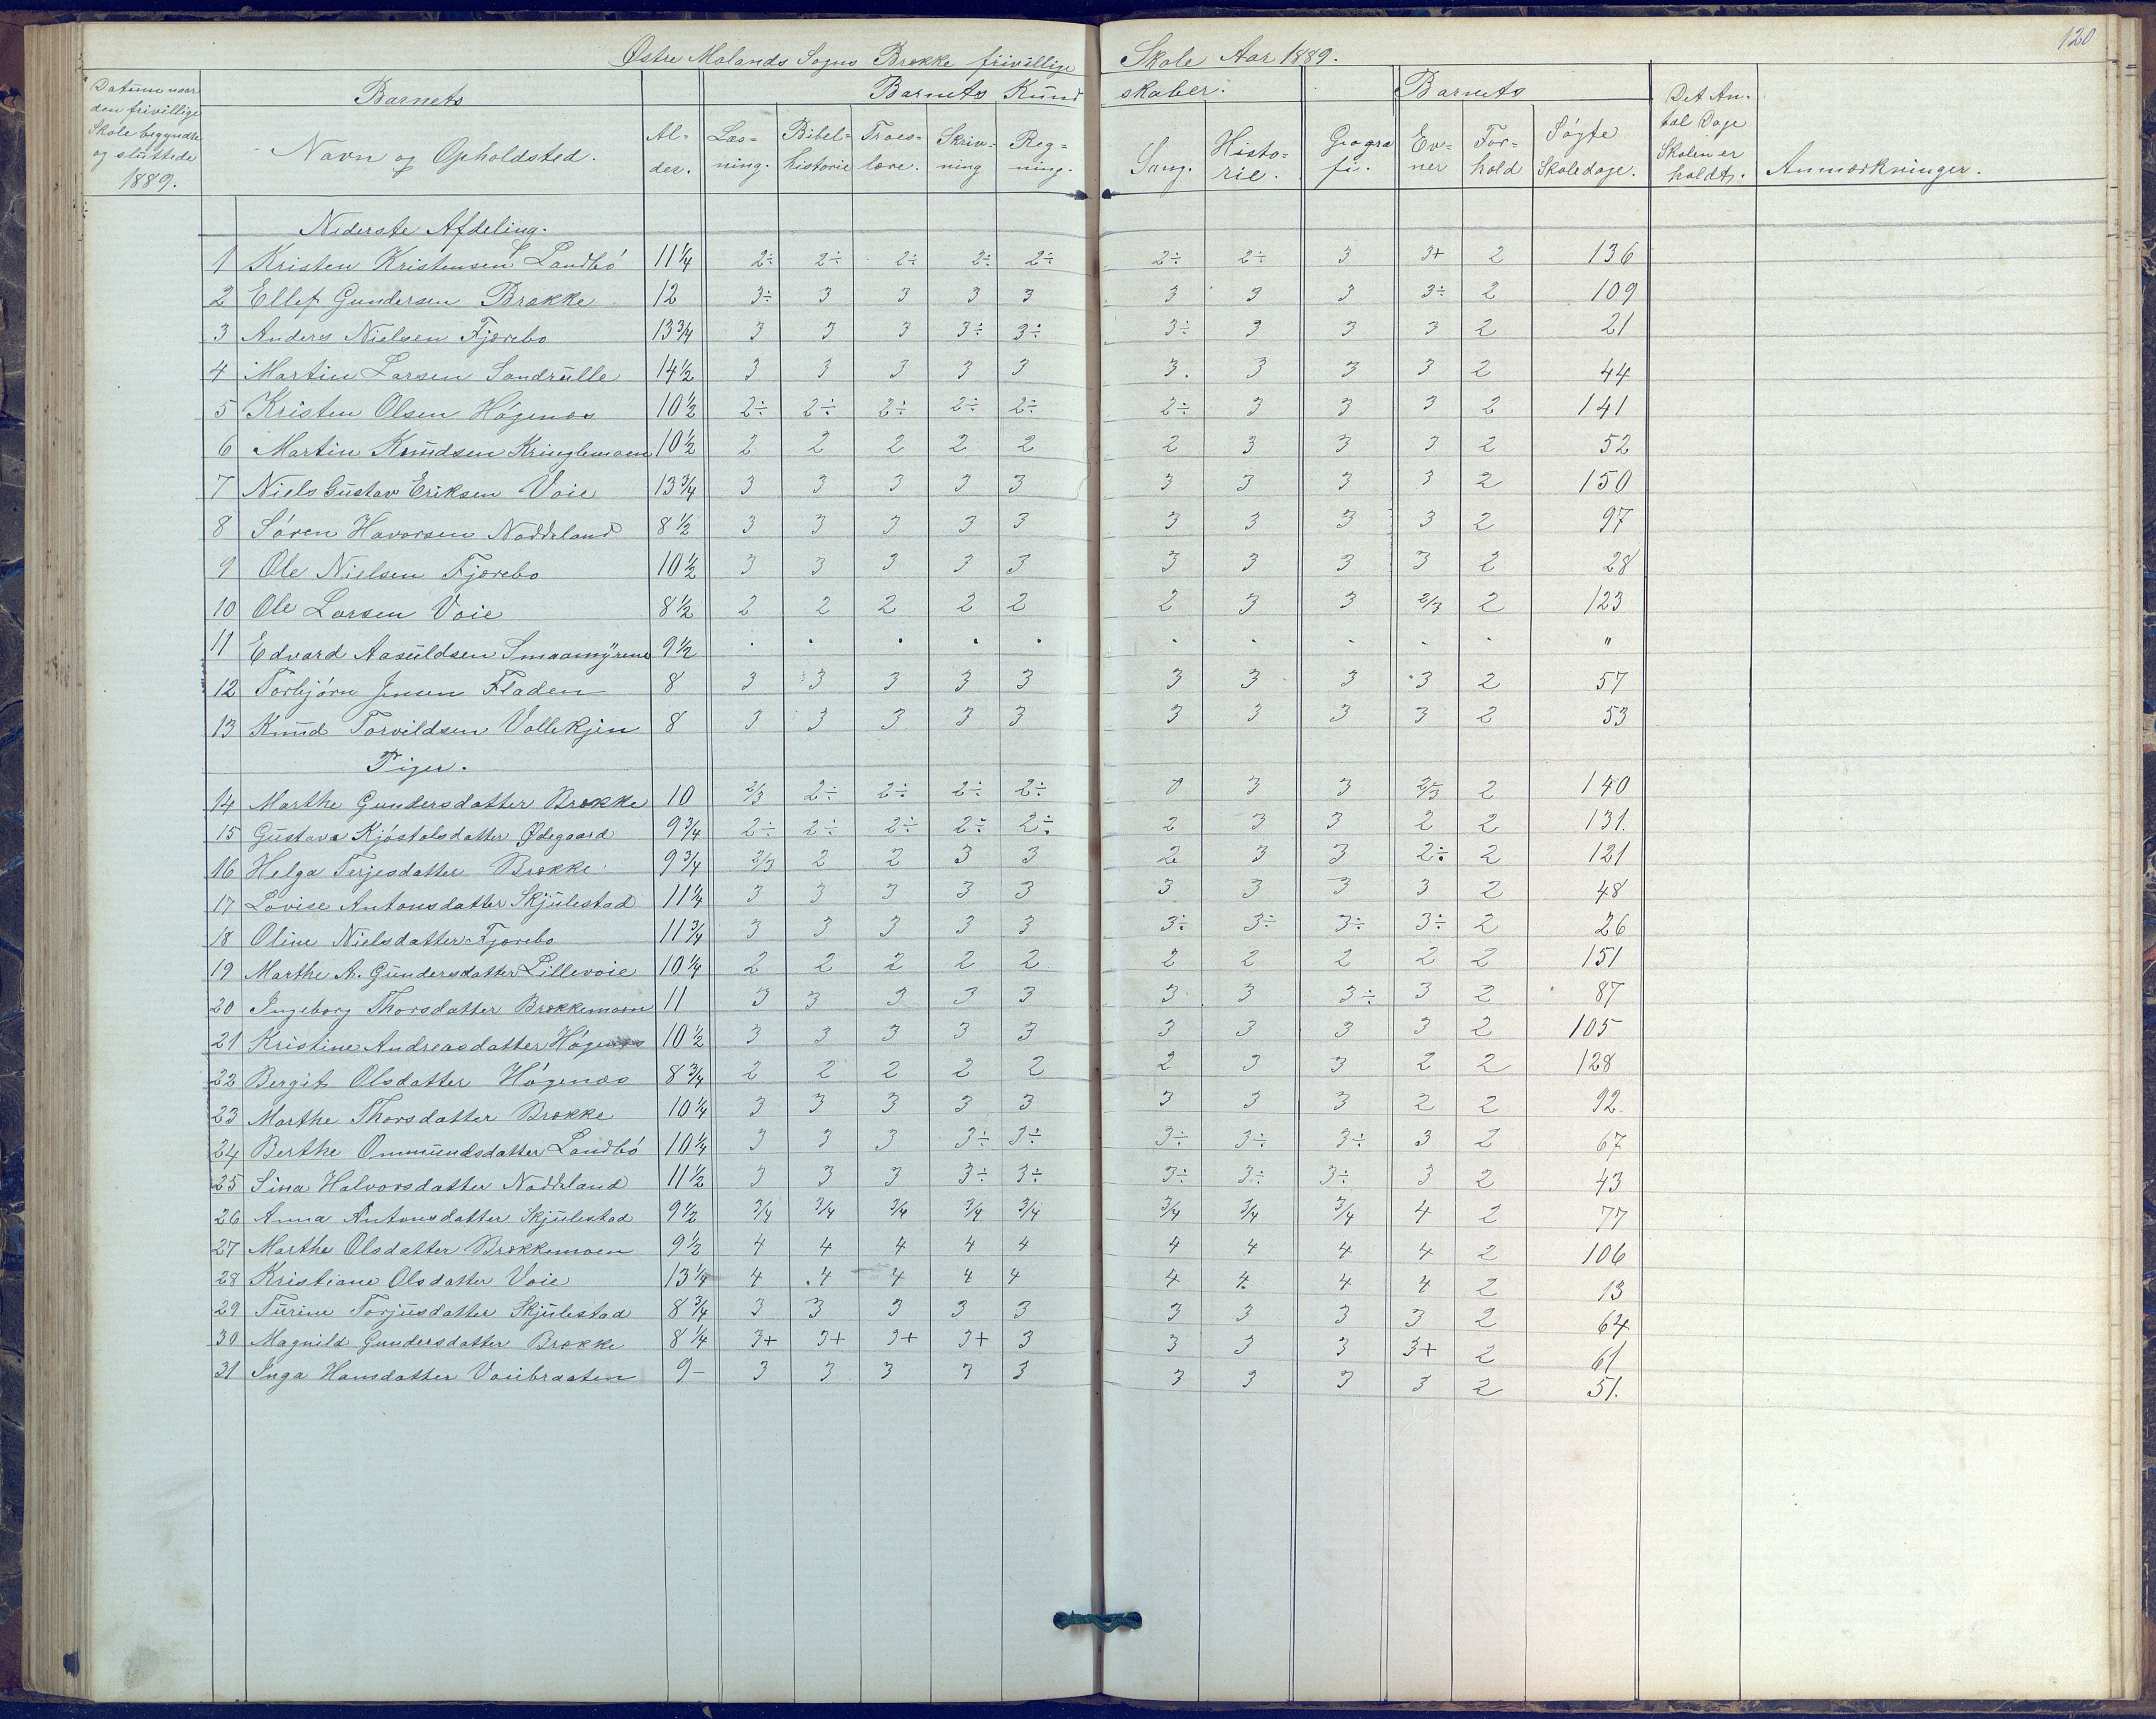 120
Østre Molands Sogns Brække frivillige Skole Aar 1889.
Datum naar den frivillige Skole begyndte og sluttede 1889.
Barnets Navn og Opholdsted.
Al-der.
Barnets Kundskaber.
Læs-ning. Bibel-historie Troes-lære. Skriv-ning Reg-ning. Sang. Histo-rie. Geogra fi.
Barnets
Ev-ner For-hold Søgte Skoledage.
Det An-tal Dage Skolen er holdt.
Anmærkninger.
Nederste Afdeling.
1 Kristen Kristensen Landbö 11 1/4 2÷ 2÷ 2÷ 2÷ 2÷ 2÷ 2÷ 3 3+ 2 136
2 Ellef Gundersen Brække 12 3÷ 3 3 3 3 3 3 3 3÷ 2 109
3 Anders Nielsen Fjærebo 13 3/4 3 3 3 3÷ 3÷ 3÷ 3 3 3 2 21
4 Martin Larsen Sandrülle 14 1/2 3 3 3 3 3 3. 3 3 3 2 44
5 Kristen Olsen Högenæs 10 1/2 2÷ 2÷ 2÷ 2÷ 2÷ 2÷ 3 3 3 2 141
6 Martin Knudsen Kringlemoen 10 1/2 2 2 2 2 2 2 3 3 3 2 52
7 Niels Gustav Eriksen Voie 13 3/4 3 3 3 3 3 3 3 3 3 2 150
8 Sören Havorsen Naddeland 8 1/2 3 3 3 3 3 3 3 3 3 2 97
9 Ole Nielsen Fjærebo 10 1/2 3 3 3 3 3 3 3 3 3 2 28
10 Ole Larsen Voie 8 1/2 2 2 2 2 2 2 3 3 2/3 2 123
11 Edvard Aasuldsen Smaamyrene 9 1/2 . . . . . . . . . . "
12 Torbjörn Jensen Fladen 8 3 3 3 3 3 3 3 3 3 2 57
13 Knud Torvildsen Vallekjen 8 3 3 3 3 3 3 3 3 3 2 53
Piger.
14 Marthe Gundersdatter Brække 10 2/3 2÷ 2÷ 2÷ 2÷ 0 3 3 2/3 2 140
15 Gustava Kjöstolsdatter Ødegaard 9 3/4 2÷ 2÷ 2÷ 2÷ 2÷ 2 3 3 2 2 131.
16 Helga Terjesdatter Brække 9 3/4 2/3 2 2 3 3 2 3 3 2÷ 2 121
17 Lovise Antonsdatter Skjulestad 11 1/4 3 3 3 3 3 3 3 3 3 2 48
18 Oline Nielsdatter Fjærebo 11 3/4 3 3 3 3 3 3÷ 3÷ 3÷ 3÷ 2 26
19 Marthe A. Gundersdatter Lillevoie 10 1/4 2 2 2 2 2 2 2 2 2 2 151
20 Ingeborg Thorsdatter Brækkemoen 11 3 3 3 3 3 3 3 3÷ 3 2 87
21 Kristine Andreasdatter Högenæs 10 1/2 3 3 3 3 3 3 3 3 3 2 105
22 Bergit Olsdatter Högenæs 8 3/4 2 2 2 2 2 2 3 3 2 2 128
23 Marthe Thorsdatter Brække 10 1/4 3 3 3 3 3 3 3 3 2 2 92.
24 Berthe Ommundsdatter Landbö 10 1/4 3 3 3 3÷ 3÷ 3÷ 3÷ 3÷ 3 2 67
25 Sina Halvorsdatter Naddeland 11 1/2 3 3 3 3÷ 3÷ 3÷ 3÷ 3÷ 3 2 43
26 Anna Antonsdatter Skjulestad 9 1/2 3/4 3/4 3/4 3/4 3/4 3/4 3/4 3/4 4 2 77
27 Marthe Olsdatter Brækkemoen 9 1/2 4 4 4 4 4 4 4 4 4 2 106
28 Kristiane Olsdatter Voie 13 1/4 4 4 4 4 4 4 4. 4 4 2 13
29 Turine Torjusdatter Skjulestad 8 3/4 3 3 3 3 3 3 3 3 3 2 64
30 Magnild Gundersdatter Brække 8 1/4 3+ 3+ 3+ 3+ 3 3 3 3 3+ 2 61
31 Inga Hansdatter Voiebraaten 9 - 3 3 3 3 3 3 3 3 3 2 51.